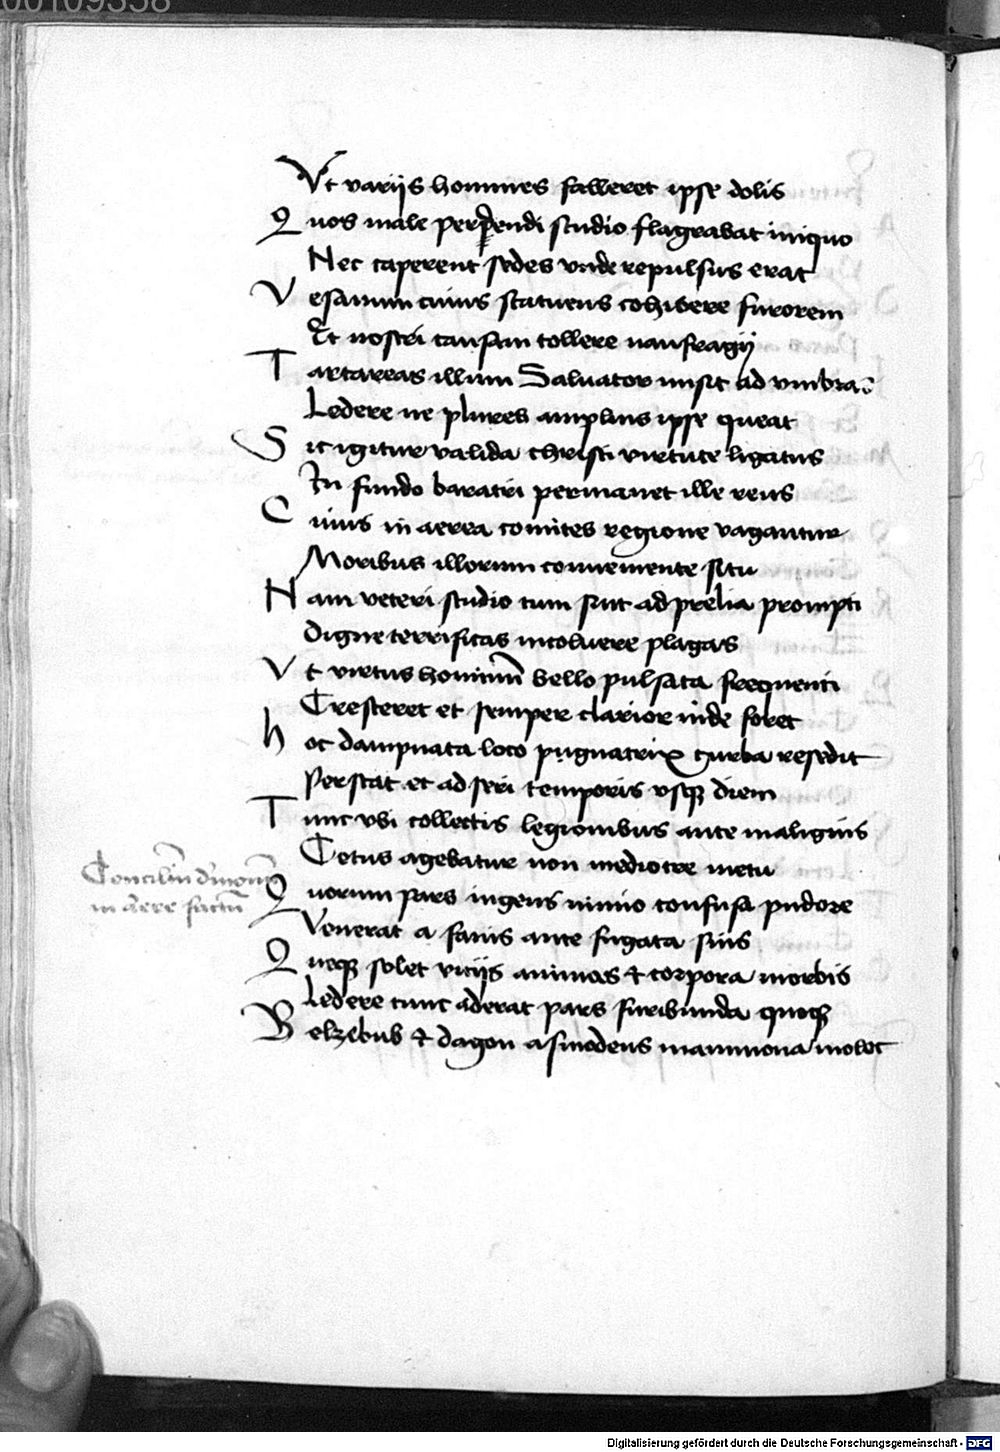 00109358
Vt varijs homines falleret ipse dolis
Quos male perpendi studio flagrabat iniquo
Nec caperent sedes vnde repulsus erat
Vesanum cuius statuens cohibere furorem
Et nostri causam tollere naufragij
Tartareas illum Saluator misit ad vmbras
Ledere ne plures amplius ipse queat
Sic igitur valida christi virtute ligatus
In fundo baratri permanet ille reus
Cuius in aerea comites regione vagantur
Moribus illorum conueniente situ
Nam veteri studio cum sint ad prelia prompti
Digne terrificas incoluere plagas
Vt virtus hominum bello pulsata frequenti
Cresceret et semper clarior inde foret
hoc dampnata loco pugnatrix turba resedit
Perstat et ad seri temporis vsq diem
Tunc vbi collectis legionibus ante malignis
Cetus agebatur non mediocre metu
Conciliū dmonū
in aere factū
Quorum pars ingens nimio confusa pudore
Venerat a fanis ante fugata suis
Queq solet vicijs animas & corpora morbis
Ledere tunc aderat pars furibunda quoq
Belzebub & dagon asmodeus mammona moloc
Digitalisierung gefördert durch die Deutsche Forschungsgemeinschaft - DFG